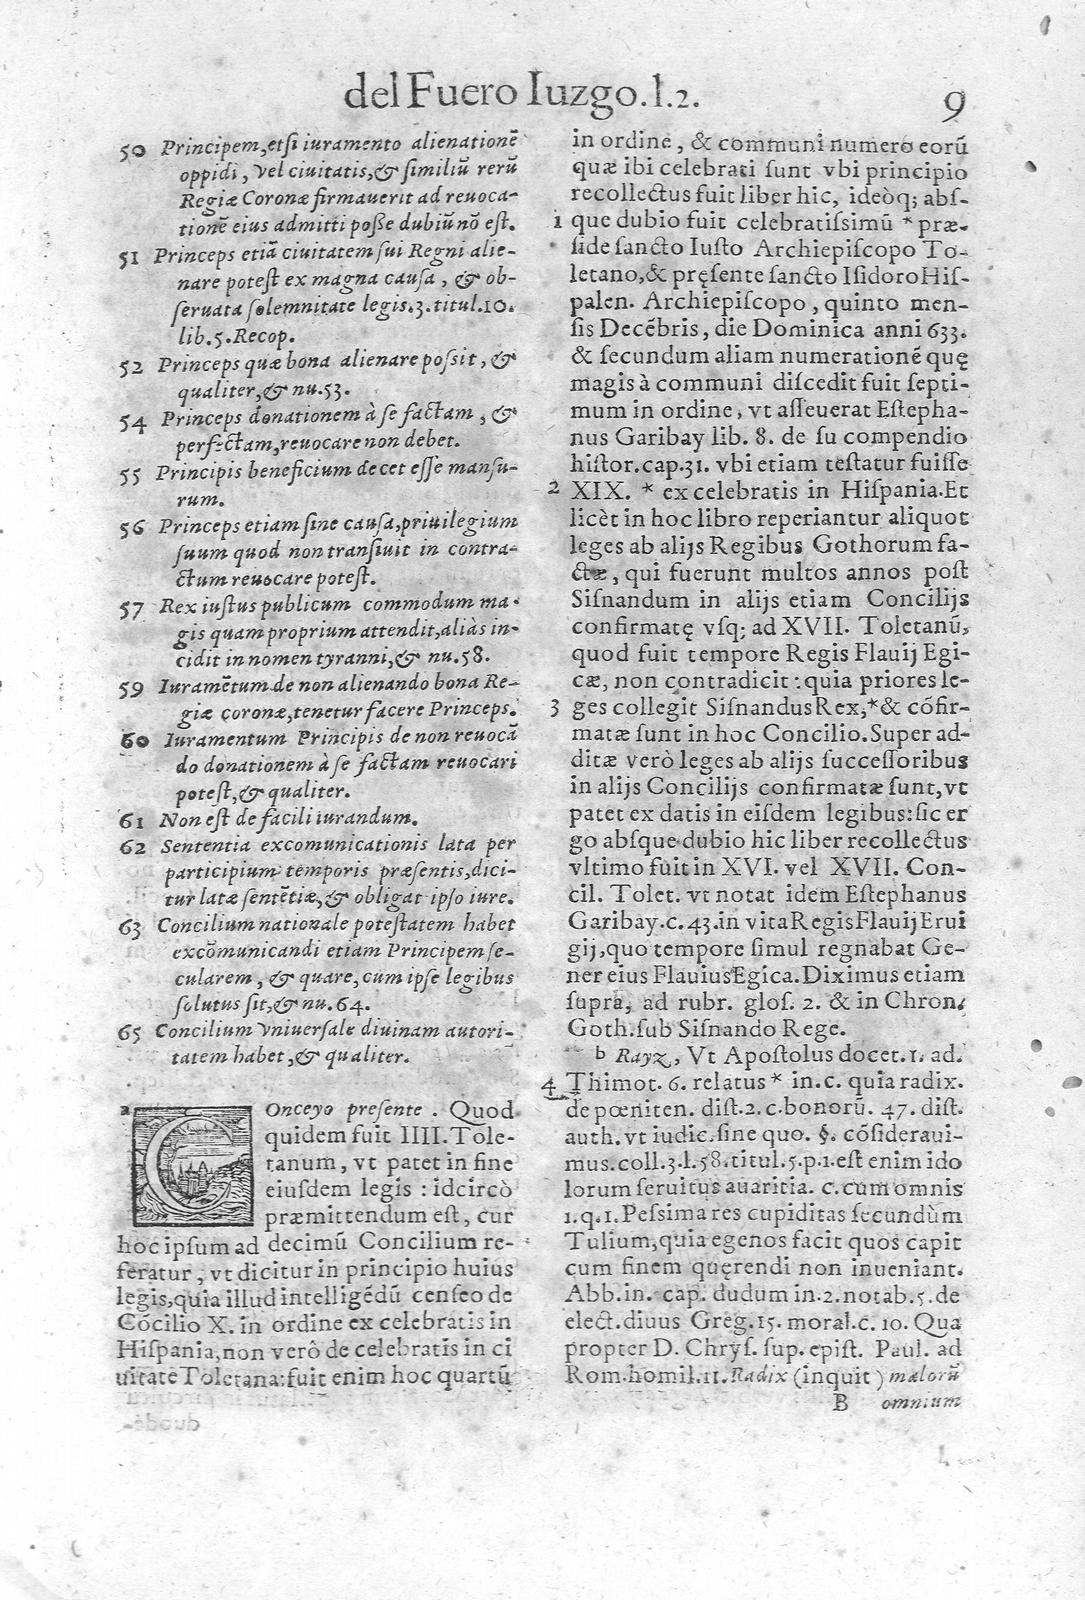 del Fuero Iuzgo.l.2.
9
50 Principem,etsi iuramento alienationē
oppidi, vel ciuitatis,& similiū rerū
Regiæ Coronæ firmauerit ad reuoca-
tionē eius admitti posse dubiū nō est.
51 Princeps etiā ciuitatem sui Regni alie-
nare potest ex magna causa, & ob-
seruata solemnitate legis.3.titul.10.
lib.5.Recop.
52 Princeps quæ bona alienare possit, &
qualiter,& nu.53.
54 Princeps donationem à se factam, &
perfectam,reuocare non debet.
55 Principis beneficium decet esse mansu-
rum.
56 Princeps etiam sine causa,priuilegium
suum quod non transiuit in contra-
ctum reuocare potest.
57 Rex iustus publicum commodum ma-
gis quam proprium attendit,aliàs in-
cidit in nomen tyranni,& nu.58.
59 Iuramētum de non alienando bona Re-
giæ coronæ,tenetur facere Princeps.
60 Iuramentum Principis de non reuocā
do donationem à se factam reuocari
potest,& qualiter.
61 Non est de facili iurandum.
62 Sententia excomunicationis lata per
participium temporis præsentis,dici-
tur latæ sentētiæ,& obligat ipso iure.
63 Concilium nationale potestatem habet
excōmunicandi etiam Principem se-
cularem, & quare, cum ipse legibus
solutus sit,& nu.64.
65 Concilium vniuersale diuinam autori-
tatem habet,& qualiter.
a COnceyo presente. Quod
quidem fuit IIII. Tole-
tanum, vt patet in fine
eiusdem legis : idcircò
præmittendum est, cur
hoc ipsum ad decimū Concilium re-
feratur, vt dicitur in principio huius
legis,quia illud intelligēdū censeo de
Cōcilio X. in ordine ex celebratis in
Hispania,non verô de celebratis in ci
uitate Toletana:fuit enim hoc quartū
in ordine, & communi numero eorū
quæ ibi celebrati sunt vbi principio
recollectus fuit liber hic, ideòq; abs-
1 que dubio fuit celebratissimū * præ-
side sancto Iusto Archiepiscopo To-
letano,& pręsente sancto Isidoro His-
palen. Archiepiscopo, quinto men-
sis Decēbris, die Dominica anni 633.
& secundum aliam numerationē quę
magis à communi discedit fuit septi-
mum in ordine, vt asseuerat Estepha-
nus Garibay lib. 8. de su compendio
histor.cap.31. vbi etiam testatur fuisse
2 XIX. * ex celebratis in Hispania.Et
licèt in hoc libro reperiantur aliquot
leges ab alijs Regibus Gothorum fa-
ctæ, qui fuerunt multos annos post
Sisnandum in alijs etiam Concilijs
confirmatę vsq; ad XVII. Toletanū,
quod fuit tempore Regis Flauij Egi-
cæ, non contradicit : quia priores le-
3 ges collegit Sisnandus Rex,*& cōfir-
matæ sunt in hoc Concilio.Super ad-
ditæ verò leges ab alijs successoribus
in alijs Concilijs confirmatæ sunt,vt
patet ex datis in eisdem legibus:sic er
go absque dubio hic liber recollectus
vltimo fuit in XVI. vel XVII. Con-
cil. Tolet. vt notat idem Estephanus
Garibay.c.43.in vita Regis Flauij Erui
gij,quo tempore simul regnabat Ge-
ner eius Flauius Egica.Diximus etiam
supra, ad rubr. glos. 2. & in Chron.
Goth.sub Sisnando Rege.
b Rayz, Vt Apostolus docet.1. ad.
4 Thimot. 6. relatus * in.c. quia radix.
de pœniten. dist.2.c.bonorū. 47. dist.
auth.vt iudic.sine quo. §. cōsideraui-
mus.coll.3.l.58.titul.5.p.1.est enim ido
lorum seruitus auaritia. c.cum omnis
1.q.1.Pessima res cupiditas secundùm
Tulium,quia egenos facit quos capit
cum finem quęrendi non inueniant.
Abb.in. cap. dudum in.2.notab.5.de
elect.diuus Greg.15. moral.c.10. Qua
propter D. Chrys. sup. epist. Paul. ad
Rom.homil.11.Radix (inquit) malorū
B omnium